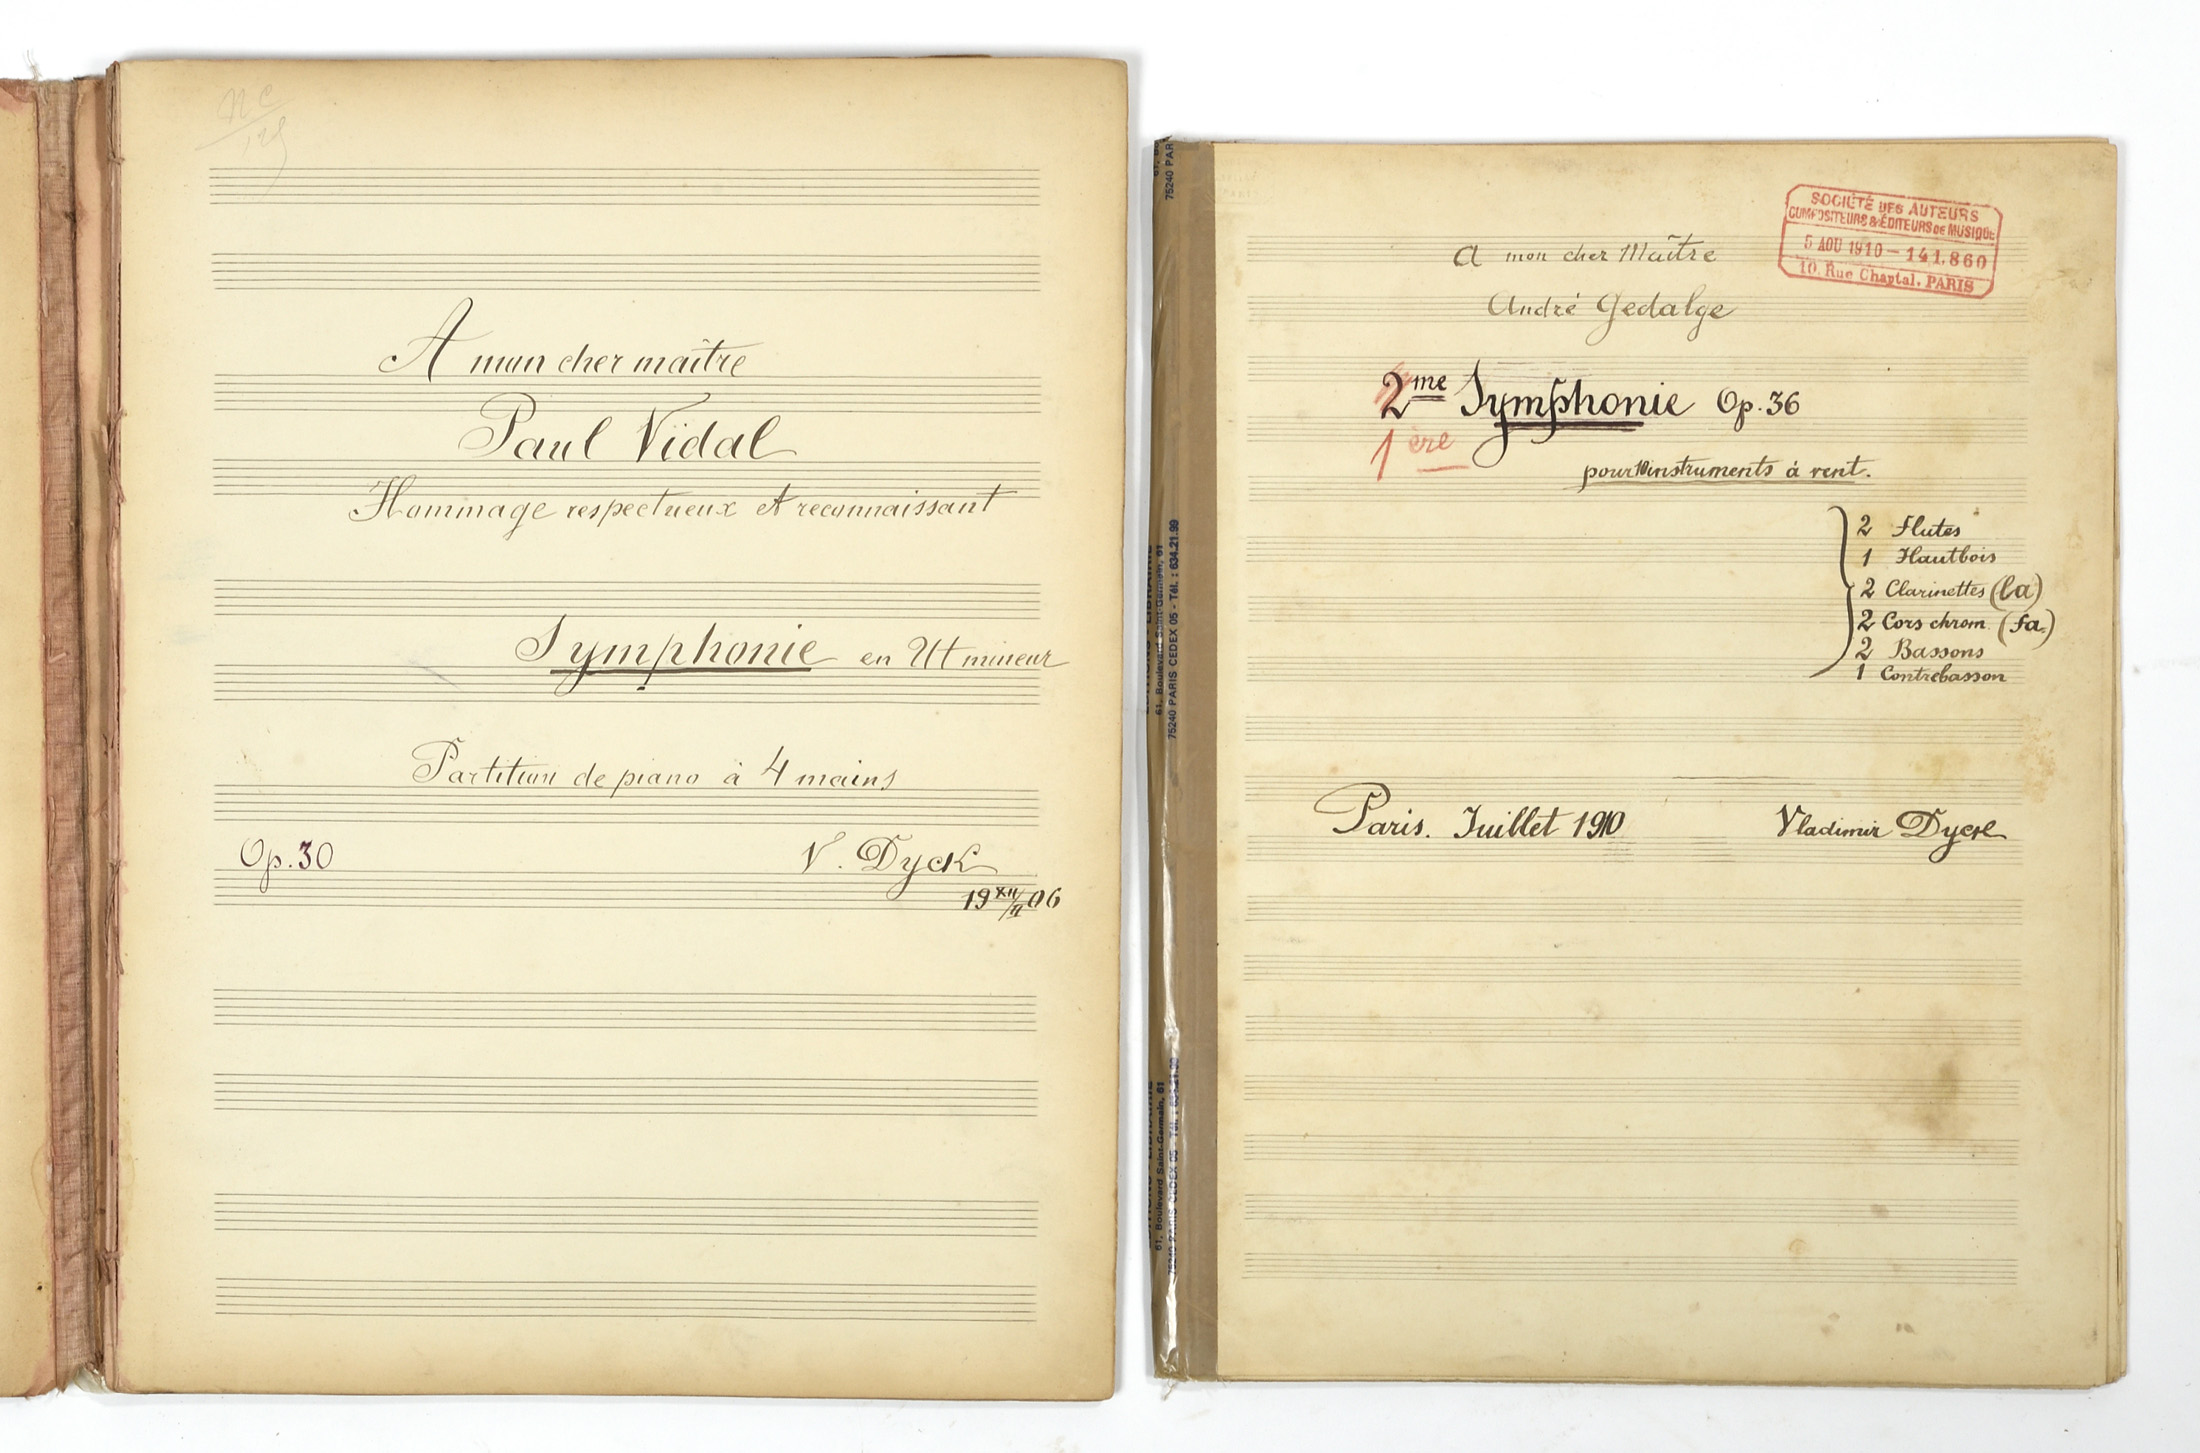 A mon cher maître
Paul Vidal
Hommage respectueux et reconnaissant
Symphonie en Ut mineur
Partition de piano à 4 mains
Op. 30
V. Dyck
19 XII/II 06
75240 PAR
61, Boulevard Saint-Germain, 61
75240 PARIS CEDEX 05 - Tél. : 634.21.99
61, Boulevard Saint-Germain, 61
75240 PARIS CEDEX 05 - Tél. : 634.21.99
SOCIÉTÉ DES AUTEURS
COMPOSITEURS & ÉDITEURS DE MUSIQUE
5 AOU 1910 - 141.860
10, Rue Chaptal. PARIS
A mon cher Maître
André Gedalge
2me Symphonie Op. 36
1ère
pour 10 instruments à vent.
2 Flutes
1 Hautbois
2 Clarinettes (la)
2 Cors chrom. (fa)
2 Bassons
1 Contrebasson
Paris. Juillet 1910
Vladimir Dyck